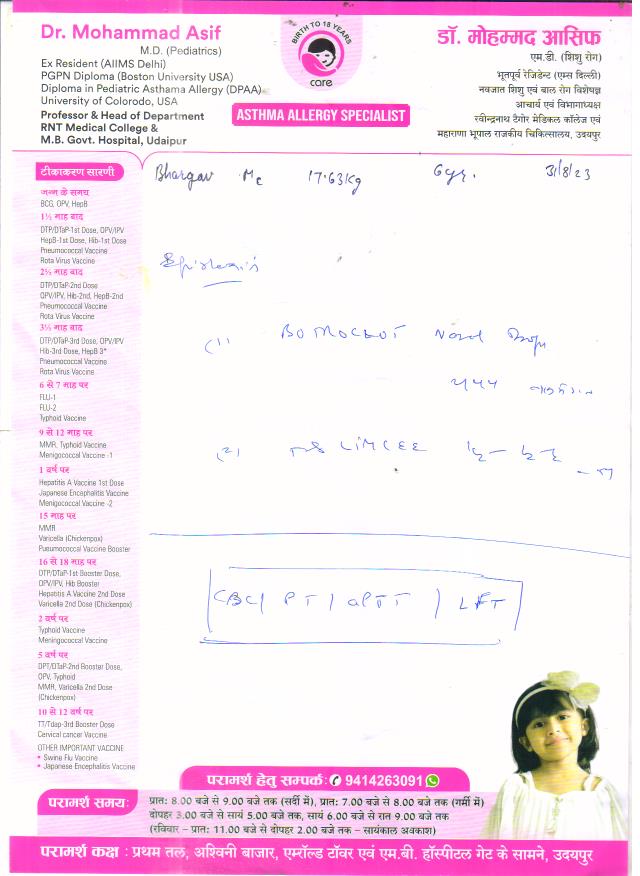 Dr. Mohammad Asif
M.D. (Pediatrics)
Ex Resident (AIIMS Delhi)
PGPN Diploma (Boston University USA)
Diploma in Pediatric Asthama Allergy (DPAA)
University of Colorodo, USA
Professor & Head of Department
RNT Medical College &
M.B. Govt. Hospital, Udaipur
BIRTH TO 18 YEARS
care
ASTHMA ALLERGY SPECIALIST
डॉ. मोहम्मद आसिफ
एम.डी. (शिशु रोग)
भूतपूर्व रेजिडेन्ट (एम्स दिल्ली)
नवजात शिशु एवं बाल रोग विशेषज्ञ
आचार्य एवं विभागाध्यक्ष
रवीन्द्रनाथ टैगोर मेडिकल कॉलेज एवं
महाराणा भूपाल राजकीय चिकित्सालय, उदयपुर
Bhargav Mc 17.63Kg 6yr. 31/8/23
टीकाकरण सारणी
जन्म के समय
BCG, OPV, HepB
1½ माह बाद
DTP/DTaP-1st Dose, OPV/IPV
HepB-1st Dose, Hib-1st Dose
Pneumococcal Vaccine
Rota Virus Vaccine
2½ माह बाद
DTP/DTaP-2nd Dose
OPV/IPV, Hib-2nd, HepB-2nd
Pneumococcal Vaccine
Rota Virus Vaccine
3½ माह बाद
DTP/DTaP-3rd Dose, OPV/IPV
Hib-3rd Dose, HepB 3*
Pneumococcal Vaccine
Rota Virus Vaccine
6 से 7 माह पर
FLU-1
FLU-2
Typhoid Vaccine
9 से 12 माह पर
MMR, Typhoid Vaccine
Menigococcal Vaccine -1
1 वर्ष पर
Hepatitis A Vaccine 1st Dose
Japanese Encephalitis Vaccine
Menigococcal Vaccine -2
15 माह पर
MMR
Varicella (Chickenpox)
Pueumococcal Vaccine Booster
16 से 18 माह पर
DTP/DTaP-1st Booster Dose,
OPV/IPV, Hib Booster
Hepatitis A Vaccine 2nd Dose
Varicella 2nd Dose (Chickenpox)
2 वर्ष पर
Typhoid Vaccine
Meningococcal Vaccine
5 वर्ष पर
DPT/DTaP-2nd Booster Dose,
OPV, Typhoid
MMR, Varicella 2nd Dose
(Chickenpox)
10 से 12 वर्ष पर
TT/Tdap-3rd Booster Dose
Cervical cancer Vaccine
OTHER IMPORTANT VACCINE
• Swine Flu Vaccine
• Japanese Encephalitis Vaccine
(1) Nasal Drop
(2) LIMCEE
CBC / PT / aPTT / LFT
परामर्श हेतु सम्पर्क: 9414263091
परामर्श समय:
प्रात: 8.00 बजे से 9.00 बजे तक (सर्दी में), प्रात: 7.00 बजे से 8.00 बजे तक (गर्मी में)
दोपहर 3.00 बजे से सायं 5.00 बजे तक, सायं 6.00 बजे से रात 9.00 बजे तक
(रविवार - प्रात: 11.00 बजे से दोपहर 2.00 बजे तक - सायंकाल अवकाश)
परामर्श कक्ष : प्रथम तल, अश्विनी बाजार, एमरॉल्ड टॉवर एवं एम.बी. हॉस्पीटल गेट के सामने, उदयपुर